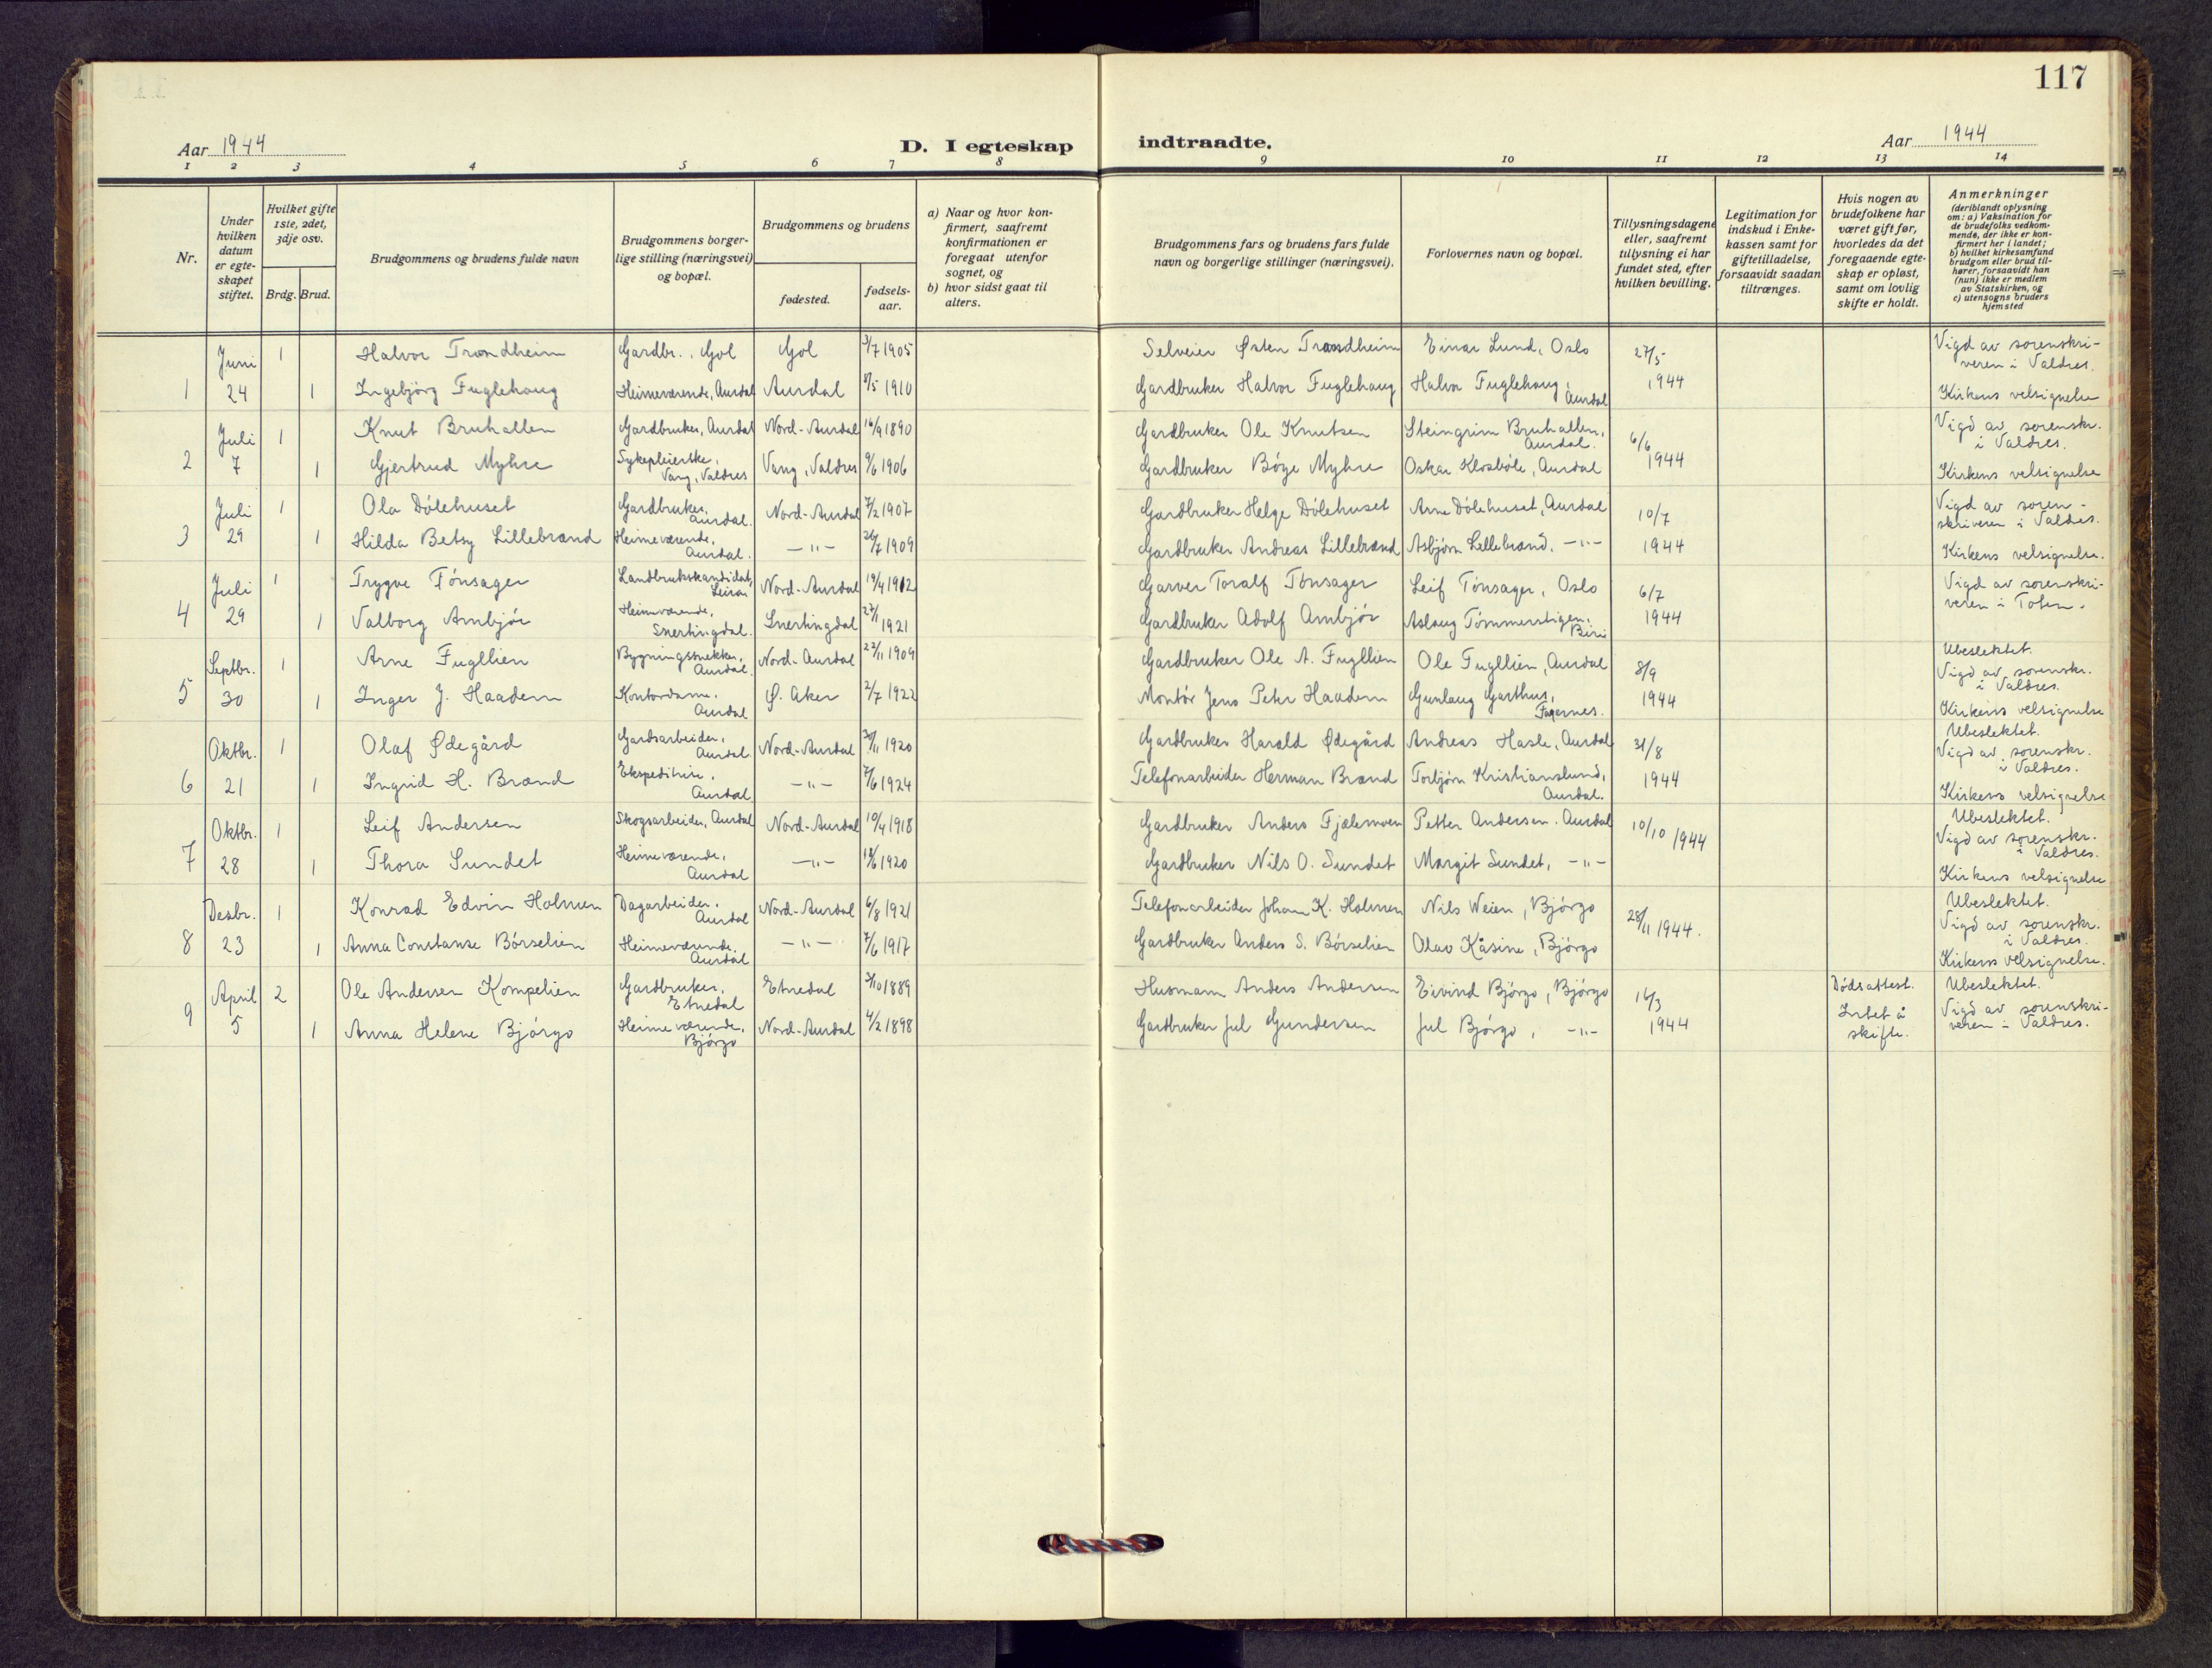 117
Aar 1944
D. I egteskap indtraadte.
Aar 1944
1 2 3 4 5 6 7 8 9 10 11 12 13 14
Nr.
Under hvilken datum er egteskapet stiftet.
Hvilket gifte 1ste, 2det, 3dje osv.
Brdg. Brud.
Brudgommens og brudens fulde navn
Brudgommens borgerlige stilling (næringsvei) og bopæl.
Brudgommens og brudens
fødested.
fødselsaar.
a) Naar og hvor konfirmert, saafremt konfirmationen er foregaat utenfor sognet, og
b) hvor sidst gaat til alters.
Brudgommens fars og brudens fars fulde navn og borgerlige stillinger (næringsvei).
Forlovernes navn og bopæl.
Tillysningsdagene eller, saafremt tillysning ei har fundet sted, efter hvilken bevilling.
Legitimation for indskud i Enkekassen samt for giftetilladelse, forsaavidt saadan tiltrænges.
Hvis nogen av brudefolkene har været gift før, hvorledes da det foregaaende egteskap er opløst, samt om lovlig skifte er holdt.
Anmerkninger
(deriblandt oplysning om: a) Vaksination for de brudefolks vedkommende, der ikke er konfirmert her i landet; b) hvilket kirkesamfund brudgom eller brud tilhører, forsaavidt han (hun) ikke er medlem av Statskirken, og c) utensogns bruders hjemsted
Juni 1 Halvor Trondheim Gardbr., Gol Gol 3/7 1905 Selveier Østen Trondheim Einar Lund, Oslo 27/5 Vigd av sorenskriveren i Valdres.
1 24 1 Ingebjörg Fuglehaug Heimeværende, Aurdal Aurdal 8/5 1910 Gardbruker Halvor Fuglehaug Halvor Fuglehaug, Aurdal 1944 Kirkens velsignelse
Juli 1 Knut Bruhallen Gardbruker, Aurdal Nord-Aurdal 16/9 1890 Gardbruker Ole Knutsen Steingrim Bruhallen, Aurdal. 6/6 Vigd av sorenskr. i Valdres.
2 7 1 Gjertrud Myhre Sykepleierske, Vang, Valdres Vang, Valdres 9/6 1906 Gardbruker Böye Myhre Oskar Klosböle, Aurdal 1944 Kirkens velsignelse
Juli 1 Ola Dölehuset Gardbruker, Aurdal. Nord-Aurdal 7/2 1907 Gardbruker Helge Dölehuset Arne Dölehuset, Aurdal 10/7 Vigd av sorenskriveren i Valdres.
3 29 1 Hilda Betsy Lillebrand Heimeværende, Aurdal. -"- 26/7 1909 Gardbruker Andreas Lillebrand Asbjörn Lillebrand, -"- 1944 Kirkens velsignelse.
Juli 1 Trygve Tönsager Landbrukskandidat, Leira Nord-Aurdal 19/4 1912 Garver Toralf Tönsager Leif Tönsager, Oslo 6/7 Vigd av sorenskriveren i Toten.
4 29 1 Valborg Ambjör Heimeværende, Snertingdal. Snertingdal 27/1 1921 Gardbruker Adolf Ambjör Aslaug Tömmerstigen, Biri 1944
Septbr. 1 Arne Fugllien Bygningssnekker, Aurdal. Nord-Aurdal 22/11 1909 Gardbruker Ole A. Fugllien Ole Fugllien, Aurdal 8/9 Ubeslektet. Vigd av sorenskr. i Valdres.
5 30 1 Inger J. Haadem Kontordame, Aurdal Ø. Aker 2/7 1922 Montör Jens Peter Haadem Gunlaug Garthus, Fagernes. 1944 Kirkens velsignelse
Oktbr. 1 Olaf Ødegård Gardsarbeider, Aurdal. Nord-Aurdal 30/11 1920 Gardbruker Harald Ødegård Andreas Hasle, Aurdal 31/8 Ubeslektet. Vigd av sorenskr. i Valdres.
6 21 1 Ingrid H. Brænd Ekspeditrise, Aurdal -"- 7/6 1924 Telefonarbeider Herman Brænd Torbjörn Kristianslund, Aurdal. 1944 Kirkens velsignelse
Oktbr. 1 Leif Andersen Skogsarbeider, Aurdal Nord-Aurdal 10/4 1918 Gardbruker Anders Fjælemoen Petter Andersen. Aurdal 10/10 1944 Ubeslektet. Vigd av sorenskr. i Valdres.
7 28 1 Thora Sundet Heimeværende, Aurdal -"- 12/6 1920 Gardbruker Nils O. Sundet Margit Sundet, -"- Kirkens velsignelse
Desbr. 1 Konrad Edvin Holmen Dagarbeider, Aurdal Nord-Aurdal 6/8 1921 Telefonarbeider Johan K. Holmen Nils Weien, Björgo 28/11 1944. Ubeslektet. Vigd av sorenskr. i Valdres.
8 23 1 Anna Constanse Börselien Heimeværende, Aurdal -"- 7/6 1917 Gardbruker Anders S. Börselien Olav Kåsine, Björgo Kirkens velsignelse.
April 2 Ole Andersen Kompelien Gardbruker, Etnedal Etnedal 3/10 1889 Husmann Anders Andersen Eivind Björgo, Björgo 16/3 Dödsattest. Ubeslektet.
9 5 1 Anna Helene Björgo Heimeværende, Björgo Nord-Aurdal 4/2 1898 Gardbruker Jul Gundersen Jul Björgo, -"- 1944 Intet å skifte. Vigd av sorenskriveren i Valdres.